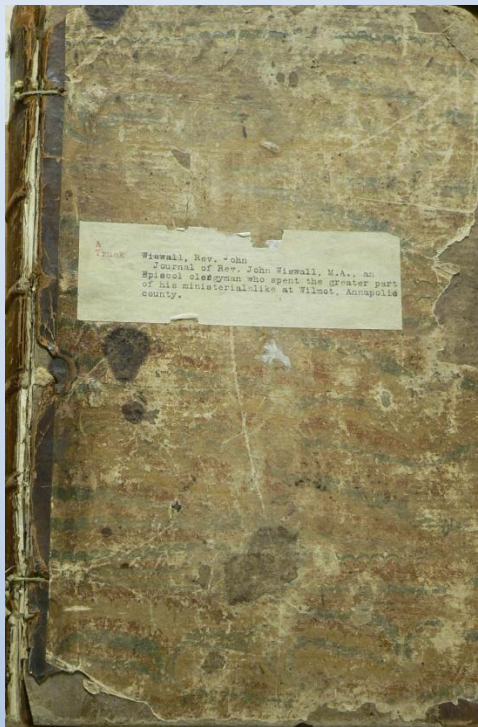 A
Trunk
Wiswall, Rev. John
Journal of Rev. John Wiswall, M.A., an
Episcol clergyman who spent the greater part
of his ministerialslike at Wilmot, Annapolis
county.